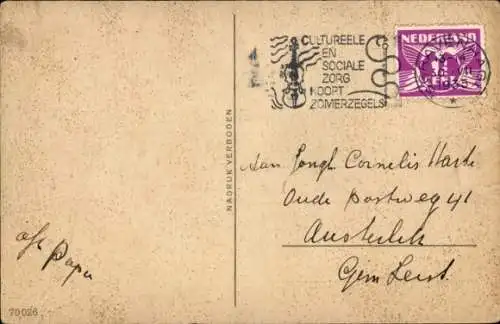 CULTUREELE
EN
SOCIALE
ZORG
KOOPT
ZOMERZEGELS
NEDERLAND
NADRUK VERBODEN
Aan Jongh. Cornelis
Oude Postweg 41
Austerlitz
Gem Zeist.
afz Papa
70026